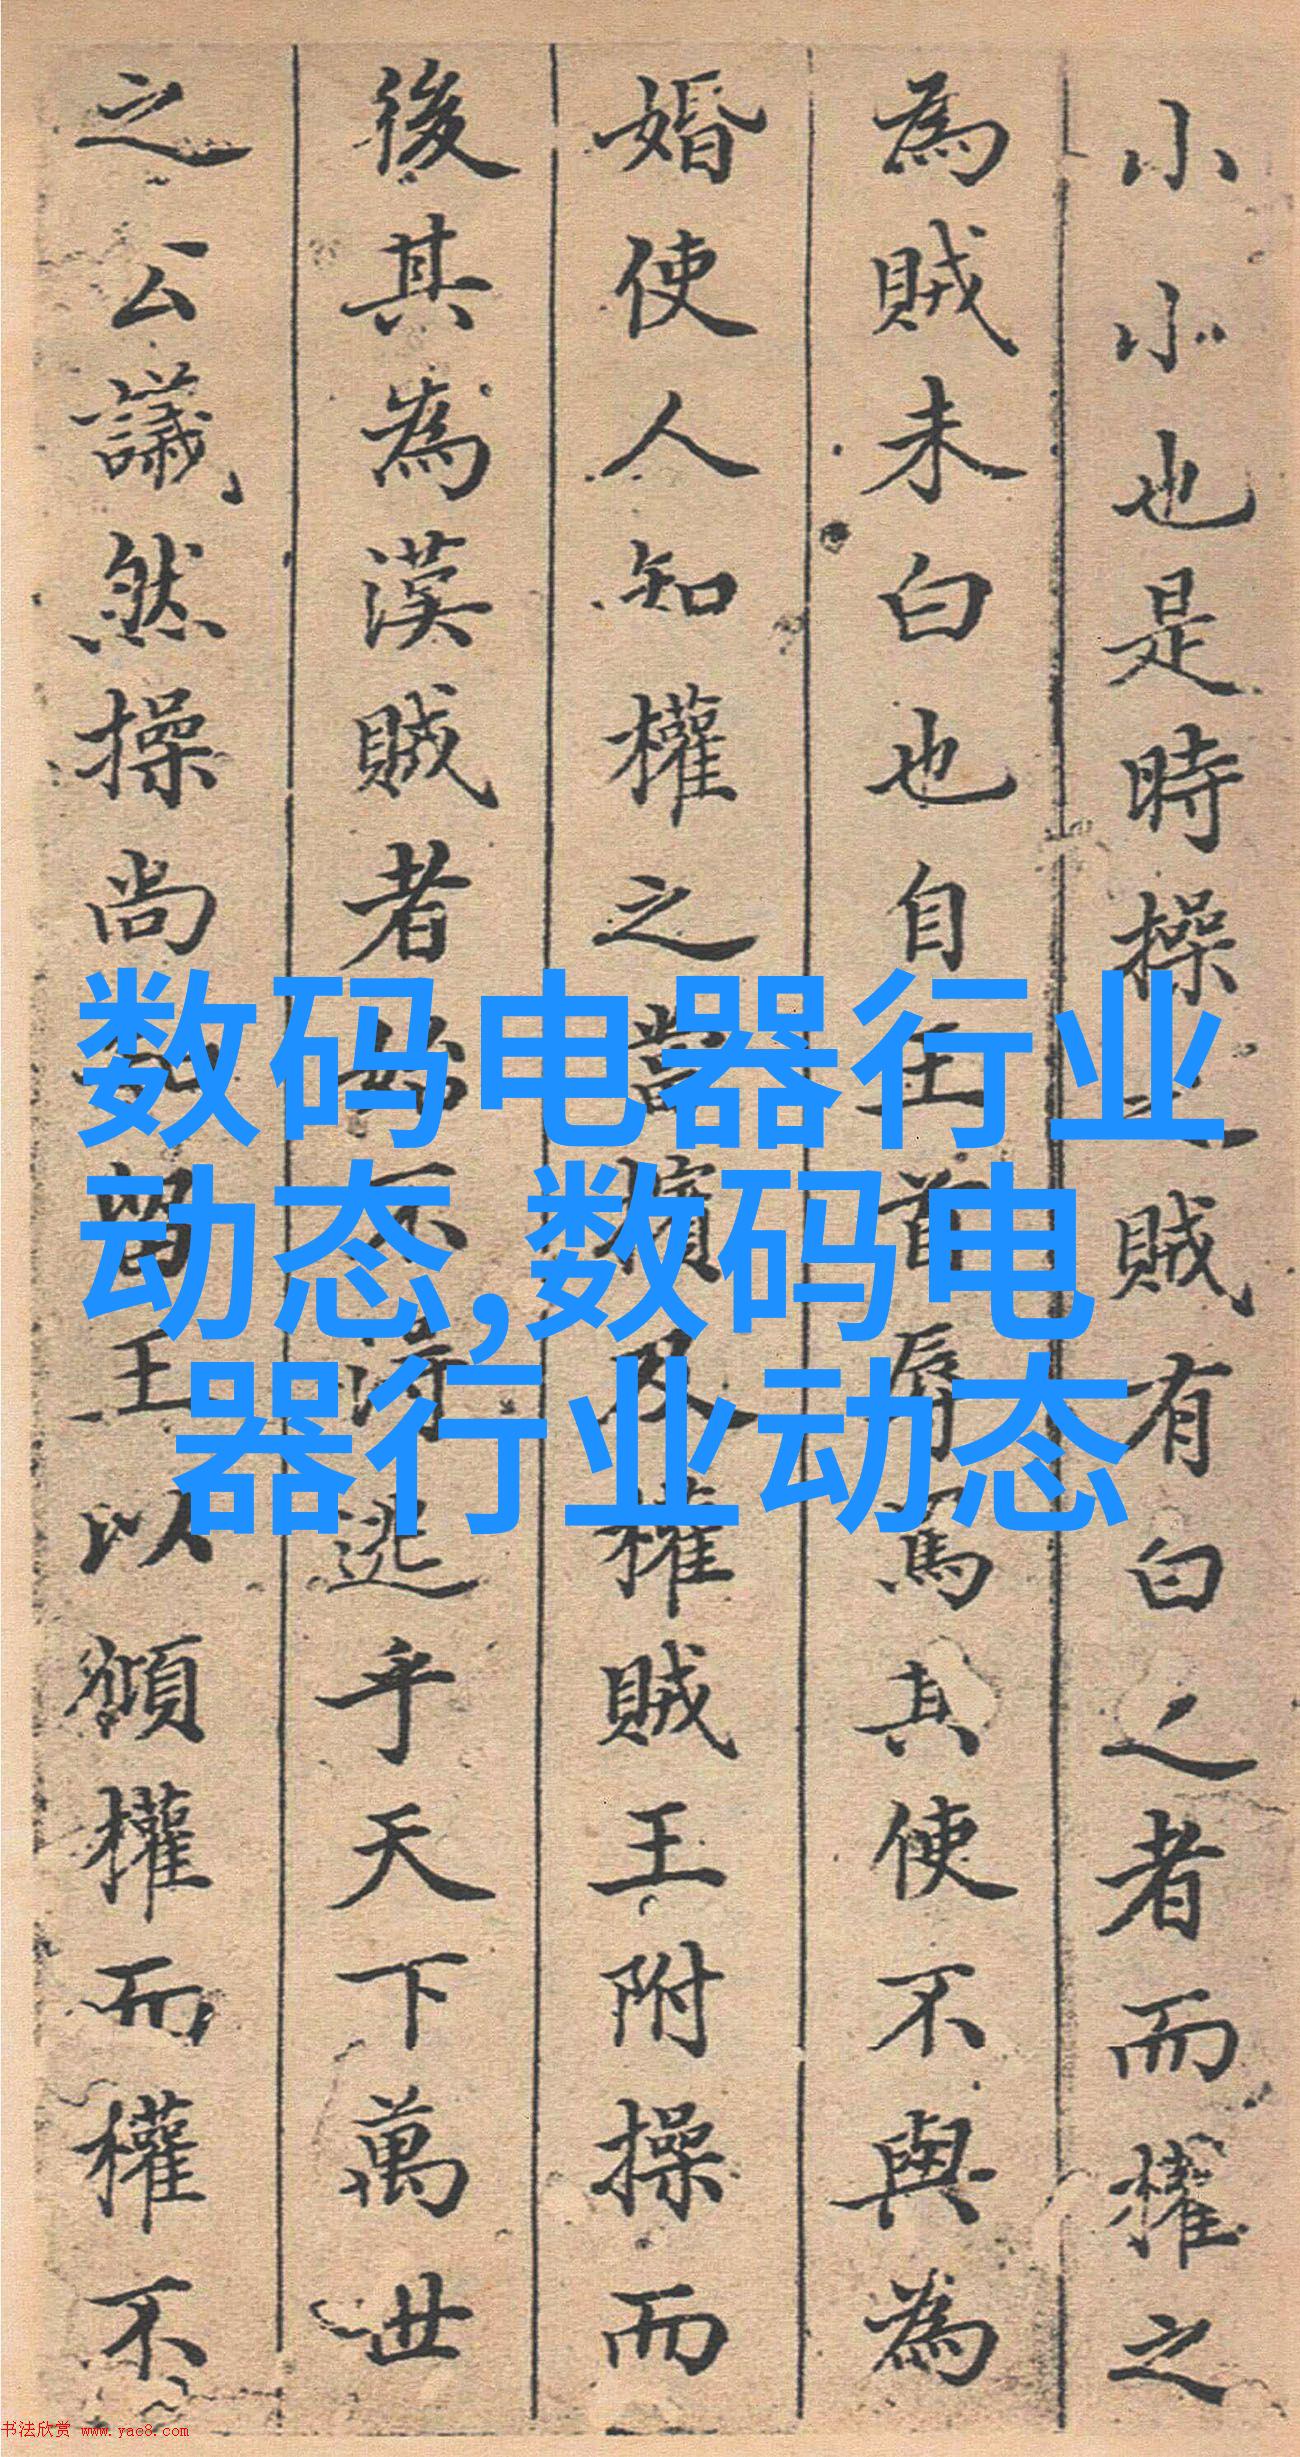 小小也是時操之賊有白之者而權之
為賊未白也自王首辱罵其使不與為
婚使人知權之當擯及權賊王附操而
後其為漢賊者始不得逃乎天下萬世
之公議然操尚王以權而權不
数码电器行业
动态,数码电
器行业动态
书法欣赏 www.yac8.com